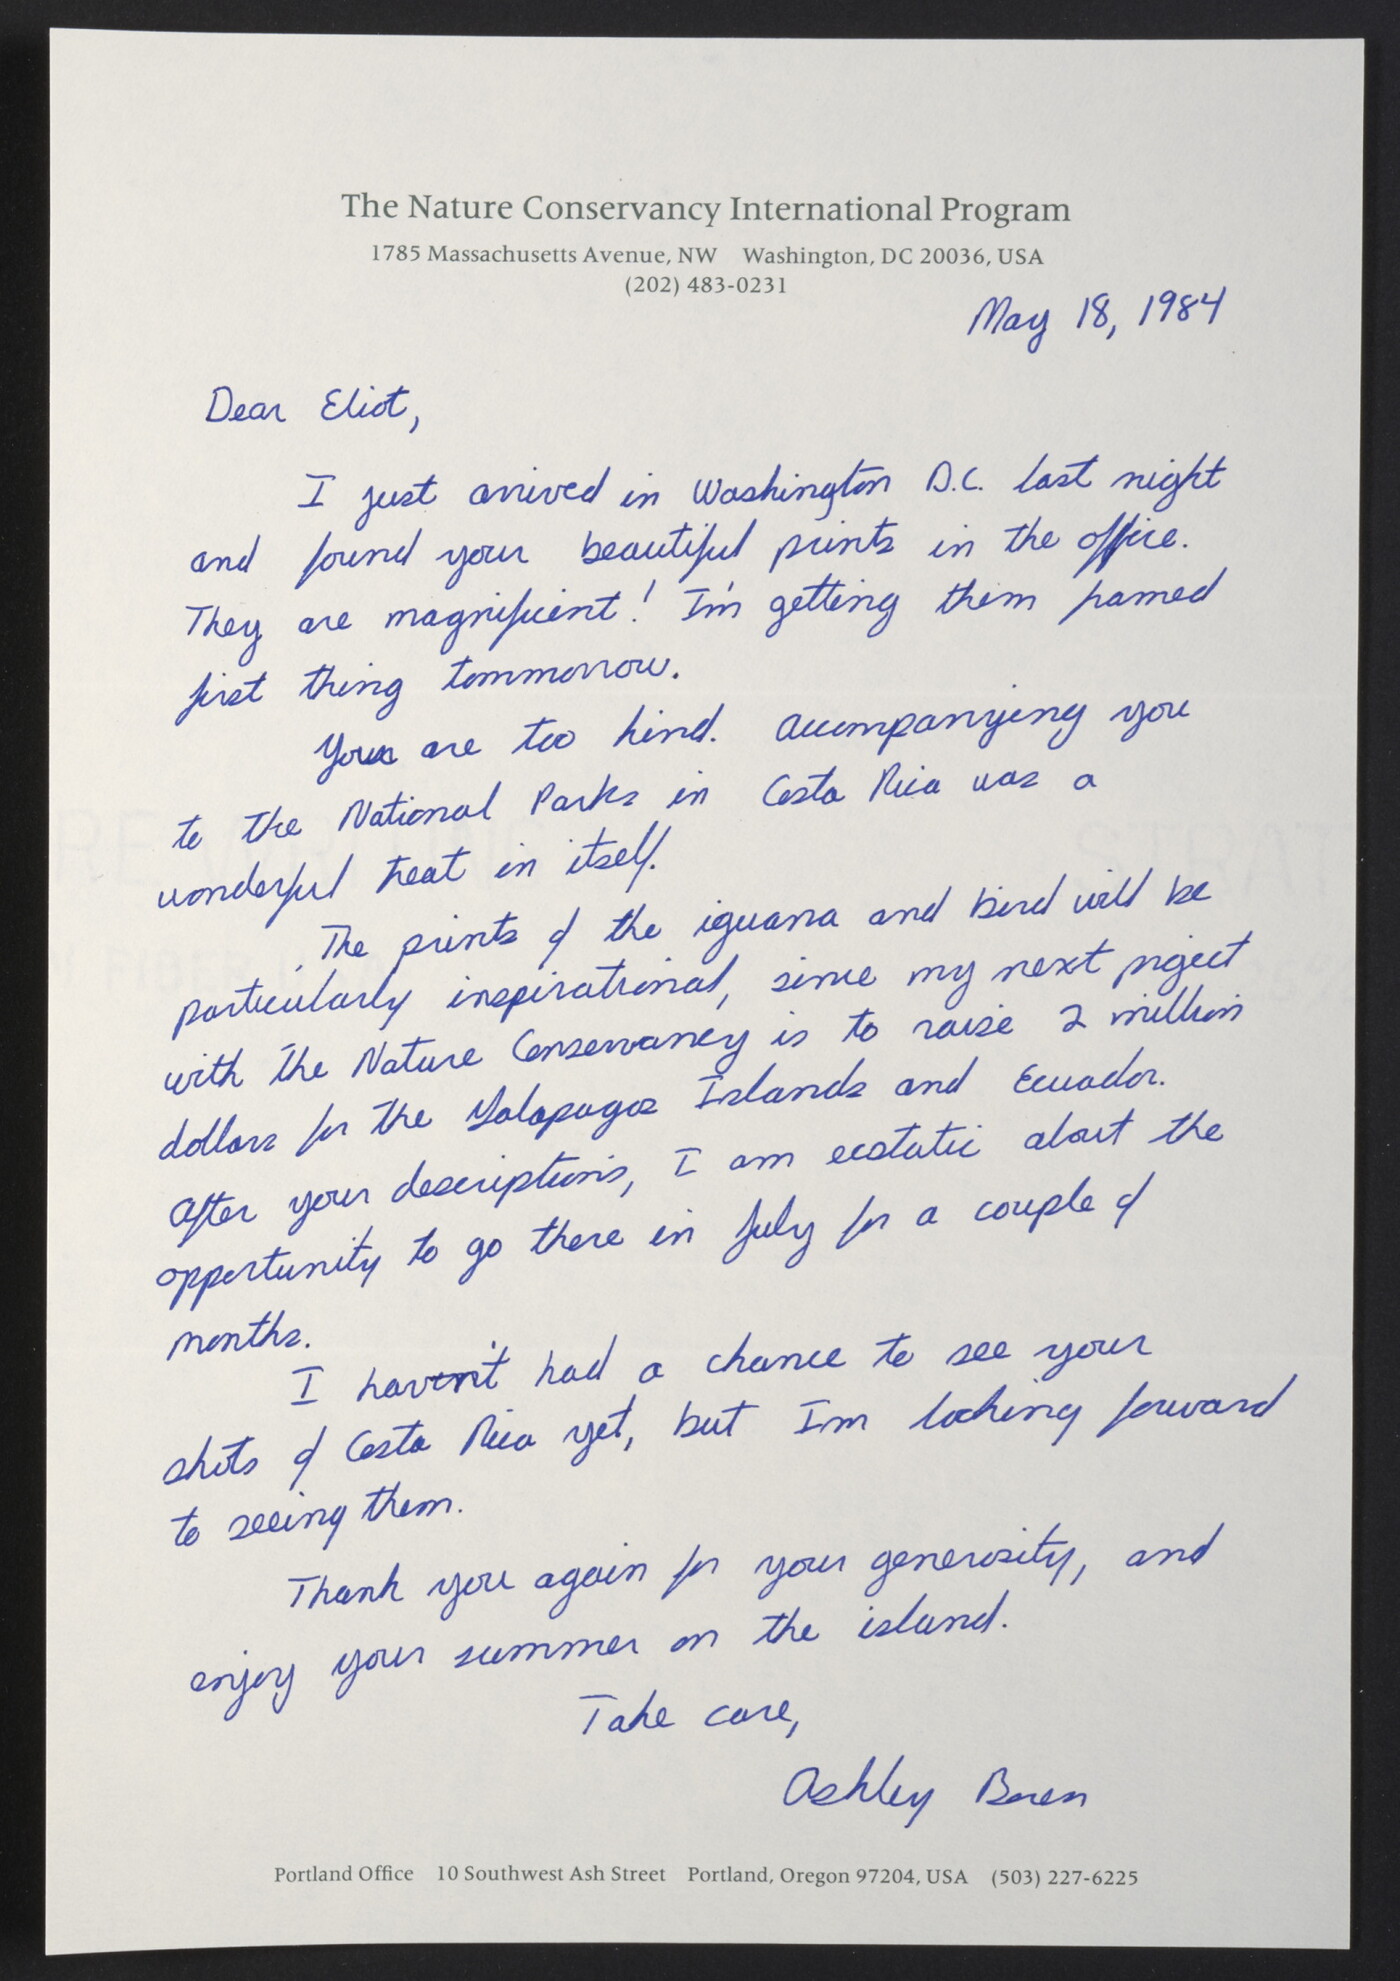 The Nature Conservancy International Program
1785 Massachusetts Avenue, NW Washington, DC 20036, USA
(202) 483-0231
May 18, 1984
Dear Eliot,
I just arrived in Washington D.C. last night
and found your beautiful prints in the office.
They are magnificient! I'm getting them framed
first thing tommorrow.
You are too kind. Accompanying you
to the National Parks in Costa Rica was a
wonderful treat in itself.
The prints of the iguana and bird will be
particularly inspirational, since my next project
with the Nature Conservancy is to raise 2 million
dollars for the Galapagos Islands and Ecuador.
After your descriptions, I am ecstatic about the
opportunity to go there in July for a couple of
months.
I haven't had a chance to see your
shots of Costa Rica yet, but I'm looking forward
to seeing them.
Thank you again for your generosity, and
enjoy your summer on the island.
Take care,
Ashley Boren
Portland Office 10 Southwest Ash Street Portland, Oregon 97204, USA (503) 227-6225